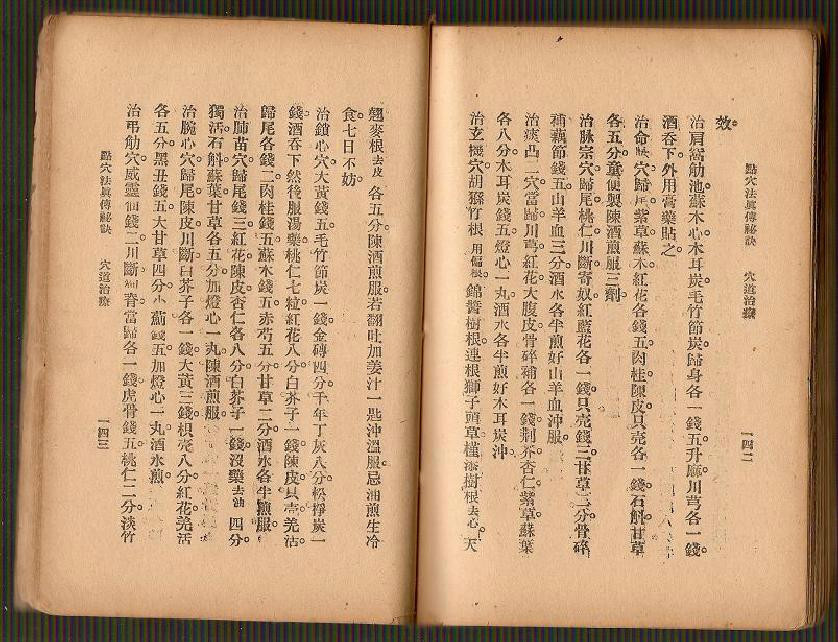 點穴法眞傳秘訣 穴道治療 一四二
效。
治肩窩觔池。蘇木心木耳炭毛竹節炭歸身各一錢五升麻川芎各一錢。
酒吞下。外用膏藥貼之。
治命 穴。歸尾紫草蘇木紅花各錢五肉桂陳皮只壳各一錢石斛甘草
各五分童便製陳酒煎服三劑。
治脉宗穴。歸尾桃仁川斷寄奴紅藍花各一錢只壳錢三甘草三分骨碎
補藕節錢五山羊血三分酒水各半煎好山羊血沖服。
治痰凸二穴。當歸川芎紅花大腹皮骨碎補各一錢荆芥杏仁紫草蘇葉
各八分木耳炭錢五燈心一丸酒水各半煎好木耳炭沖。
治玄機穴。胡猻竹根用偏根錦醬樹根連根獅子頭草槿漆樹根去心天
翹麥根去皮各五分陳酒煎服。若翻吐加姜汁一匙沖溫服。忌油煎生冷
食。七日不妨。
治鎖心穴。大黃錢五毛竹節炭一錢金磚四分千年丁灰八分松 炭一
錢。酒吞下。然後服湯藥。桃仁七粒紅花八分白芥子一錢陳皮只壳羌活
歸尾各錢二肉桂錢五蘇木錢五赤芍五分甘草二分酒水各半煎服。
治肺苗穴。歸尾錢三紅花陳皮杏仁各八分白芥子一錢沒藥去油四分
獨活石斛蘇葉甘草各五分加燈心一丸陳酒煎服。
治腕心穴。歸尾陳皮川斷白芥子各一錢大黃三錢枳壳八分紅花羌活
各五分黑丑錢五大甘草四分小薊錢五加燈心一丸酒水煎。
治弔觔穴。威靈仙錢二川斷 脊當歸各一錢虎骨錢五桃仁二分淡竹
點穴法眞傳秘訣 穴道治療 一四三